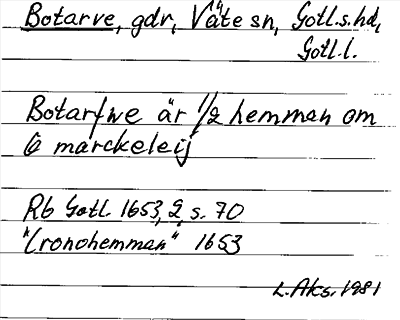 Botarve, gdr, Väte sn, Gotl.s.hd,
Gotl.l.
Botarfwe är 1/2 hemman om
6 marckeleij
Rb Gotl. 1653, 2, s. 70
"Cronohemman" 1653
L. Aks. 1981